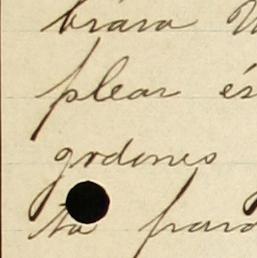 brara
plear és
grdenes
ta para